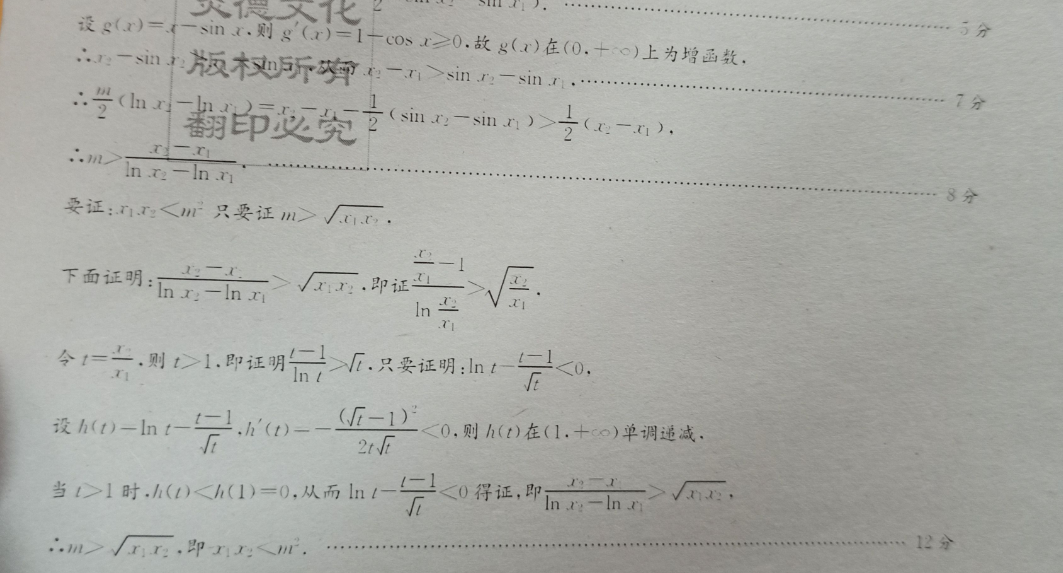 炎德文化
版权所有
翻印必究
sin x₁). …… 5分
设 g(x)=x−sin x,则 g′(x)=1−cos x≥0,故 g(x)在(0,+∞)上为增函数,
∴x₂−sin x₂ sin x₂−x₁>sin x₂−sin x₁, …… 7分
∴m/2(ln x₂−ln x₁)=x₂−x₁−1/2(sin x₂−sin x₁)>1/2(x₂−x₁),
∴m>(x₂−x₁)/(ln x₂−ln x₁). …… 8分
要证:x₁x₂<m² 只要证 m>√(x₁x₂).
下面证明:(x₂−x₁)/(ln x₂−ln x₁)>√(x₁x₂),即证(x₂/x₁−1)/(ln x₂/x₁)>√(x₂/x₁).
令 t=x₂/x₁,则 t>1,即证明(t−1)/(ln t)>√t,只要证明:ln t−(t−1)/√t<0,
设 h(t)=ln t−(t−1)/√t,h′(t)=−(√t−1)²/(2t√t)<0,则 h(t)在(1,+∞)单调递减.
当 t>1 时,h(t)<h(1)=0,从而 ln t−(t−1)/√t<0 得证,即(x₂−x₁)/(ln x₂−ln x₁)>√(x₁x₂),
∴m>√(x₁x₂),即 x₁x₂<m². …… 12分